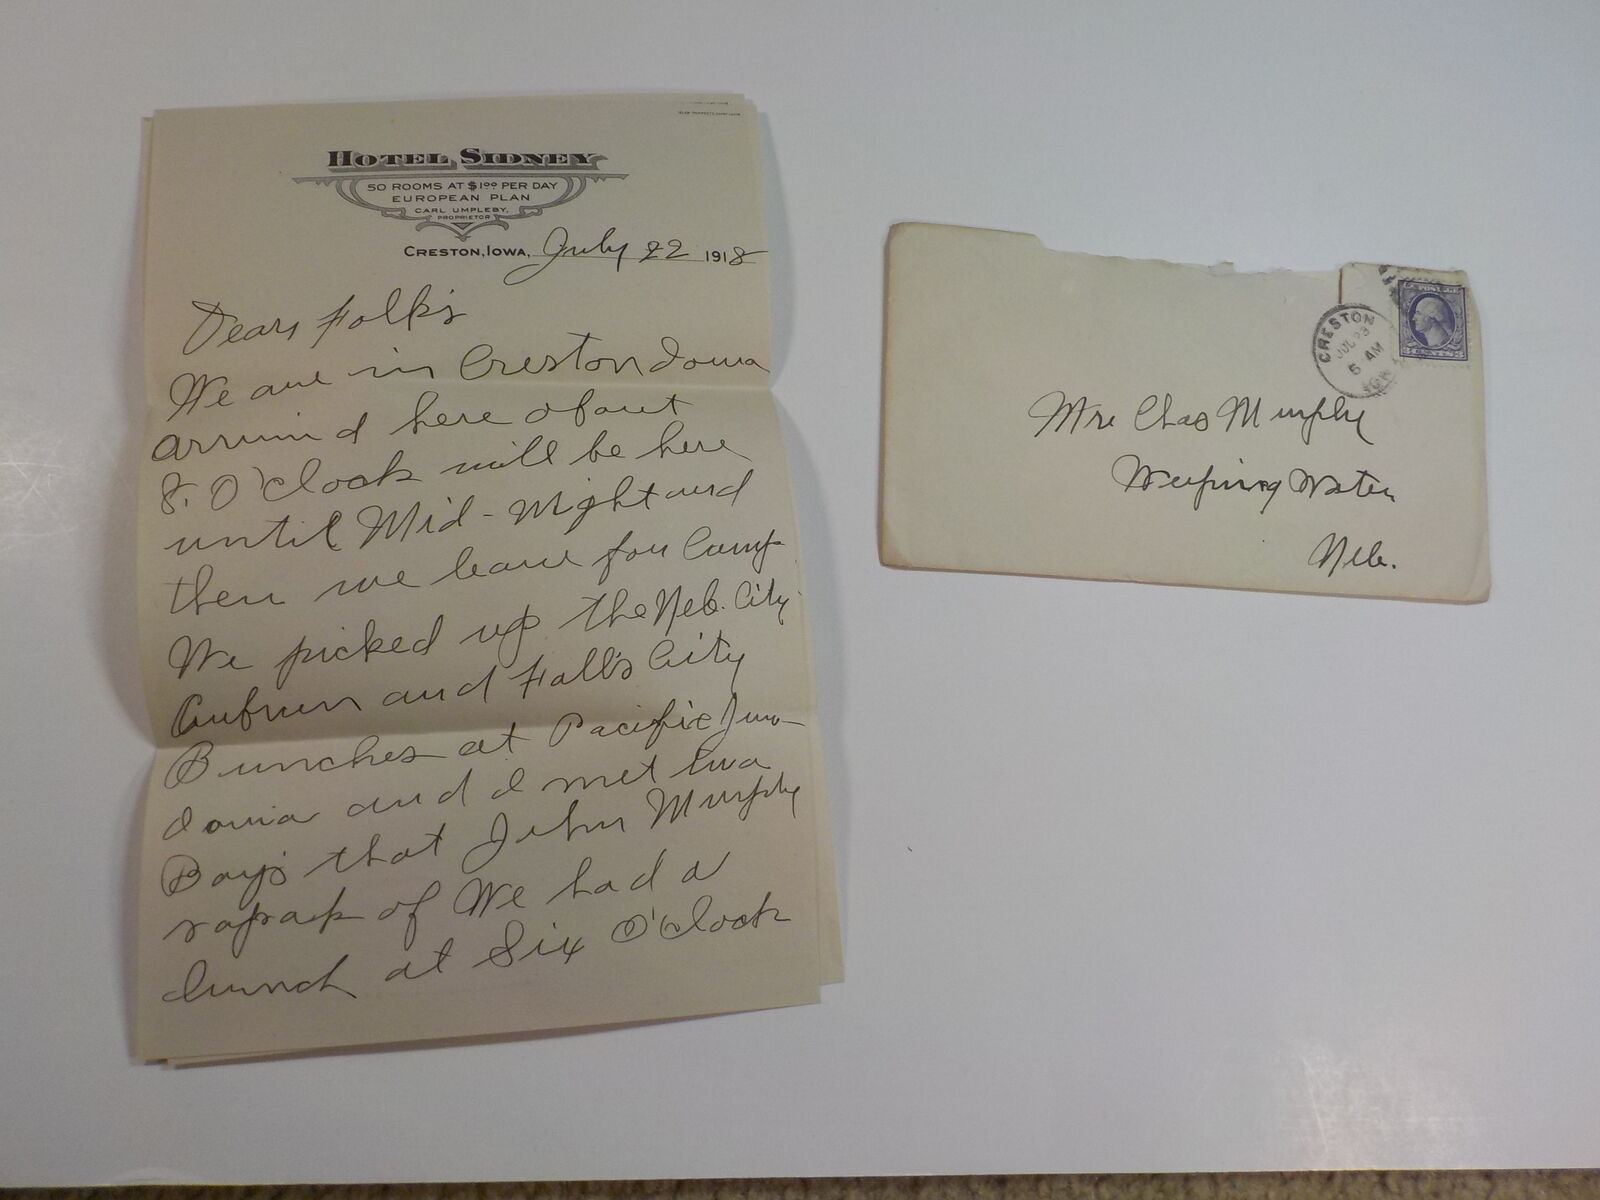 HOTEL SIDNEY
50 ROOMS AT $1.00 PER DAY
EUROPEAN PLAN
CARL UMPLEBY,
PROPRIETOR
CRESTON, IOWA, July 22 1918
Dear Folk's
We are in Creston Iowa
arrived here about
8. O'clock will be here
until Mid-night and
then we leave for Camp
We picked up the Neb. City
Auburn and Falls City
Bunches at Pacific Junc
Iowa and I met two
Boys that John Murphy
of We had a
lunch at Six O'Clock
CRESTON
JUL 23
5 AM
IOWA
U.S. POSTAGE
3 CENTS 3
Mrs Chas Murphy
Weeping Water
Neb.